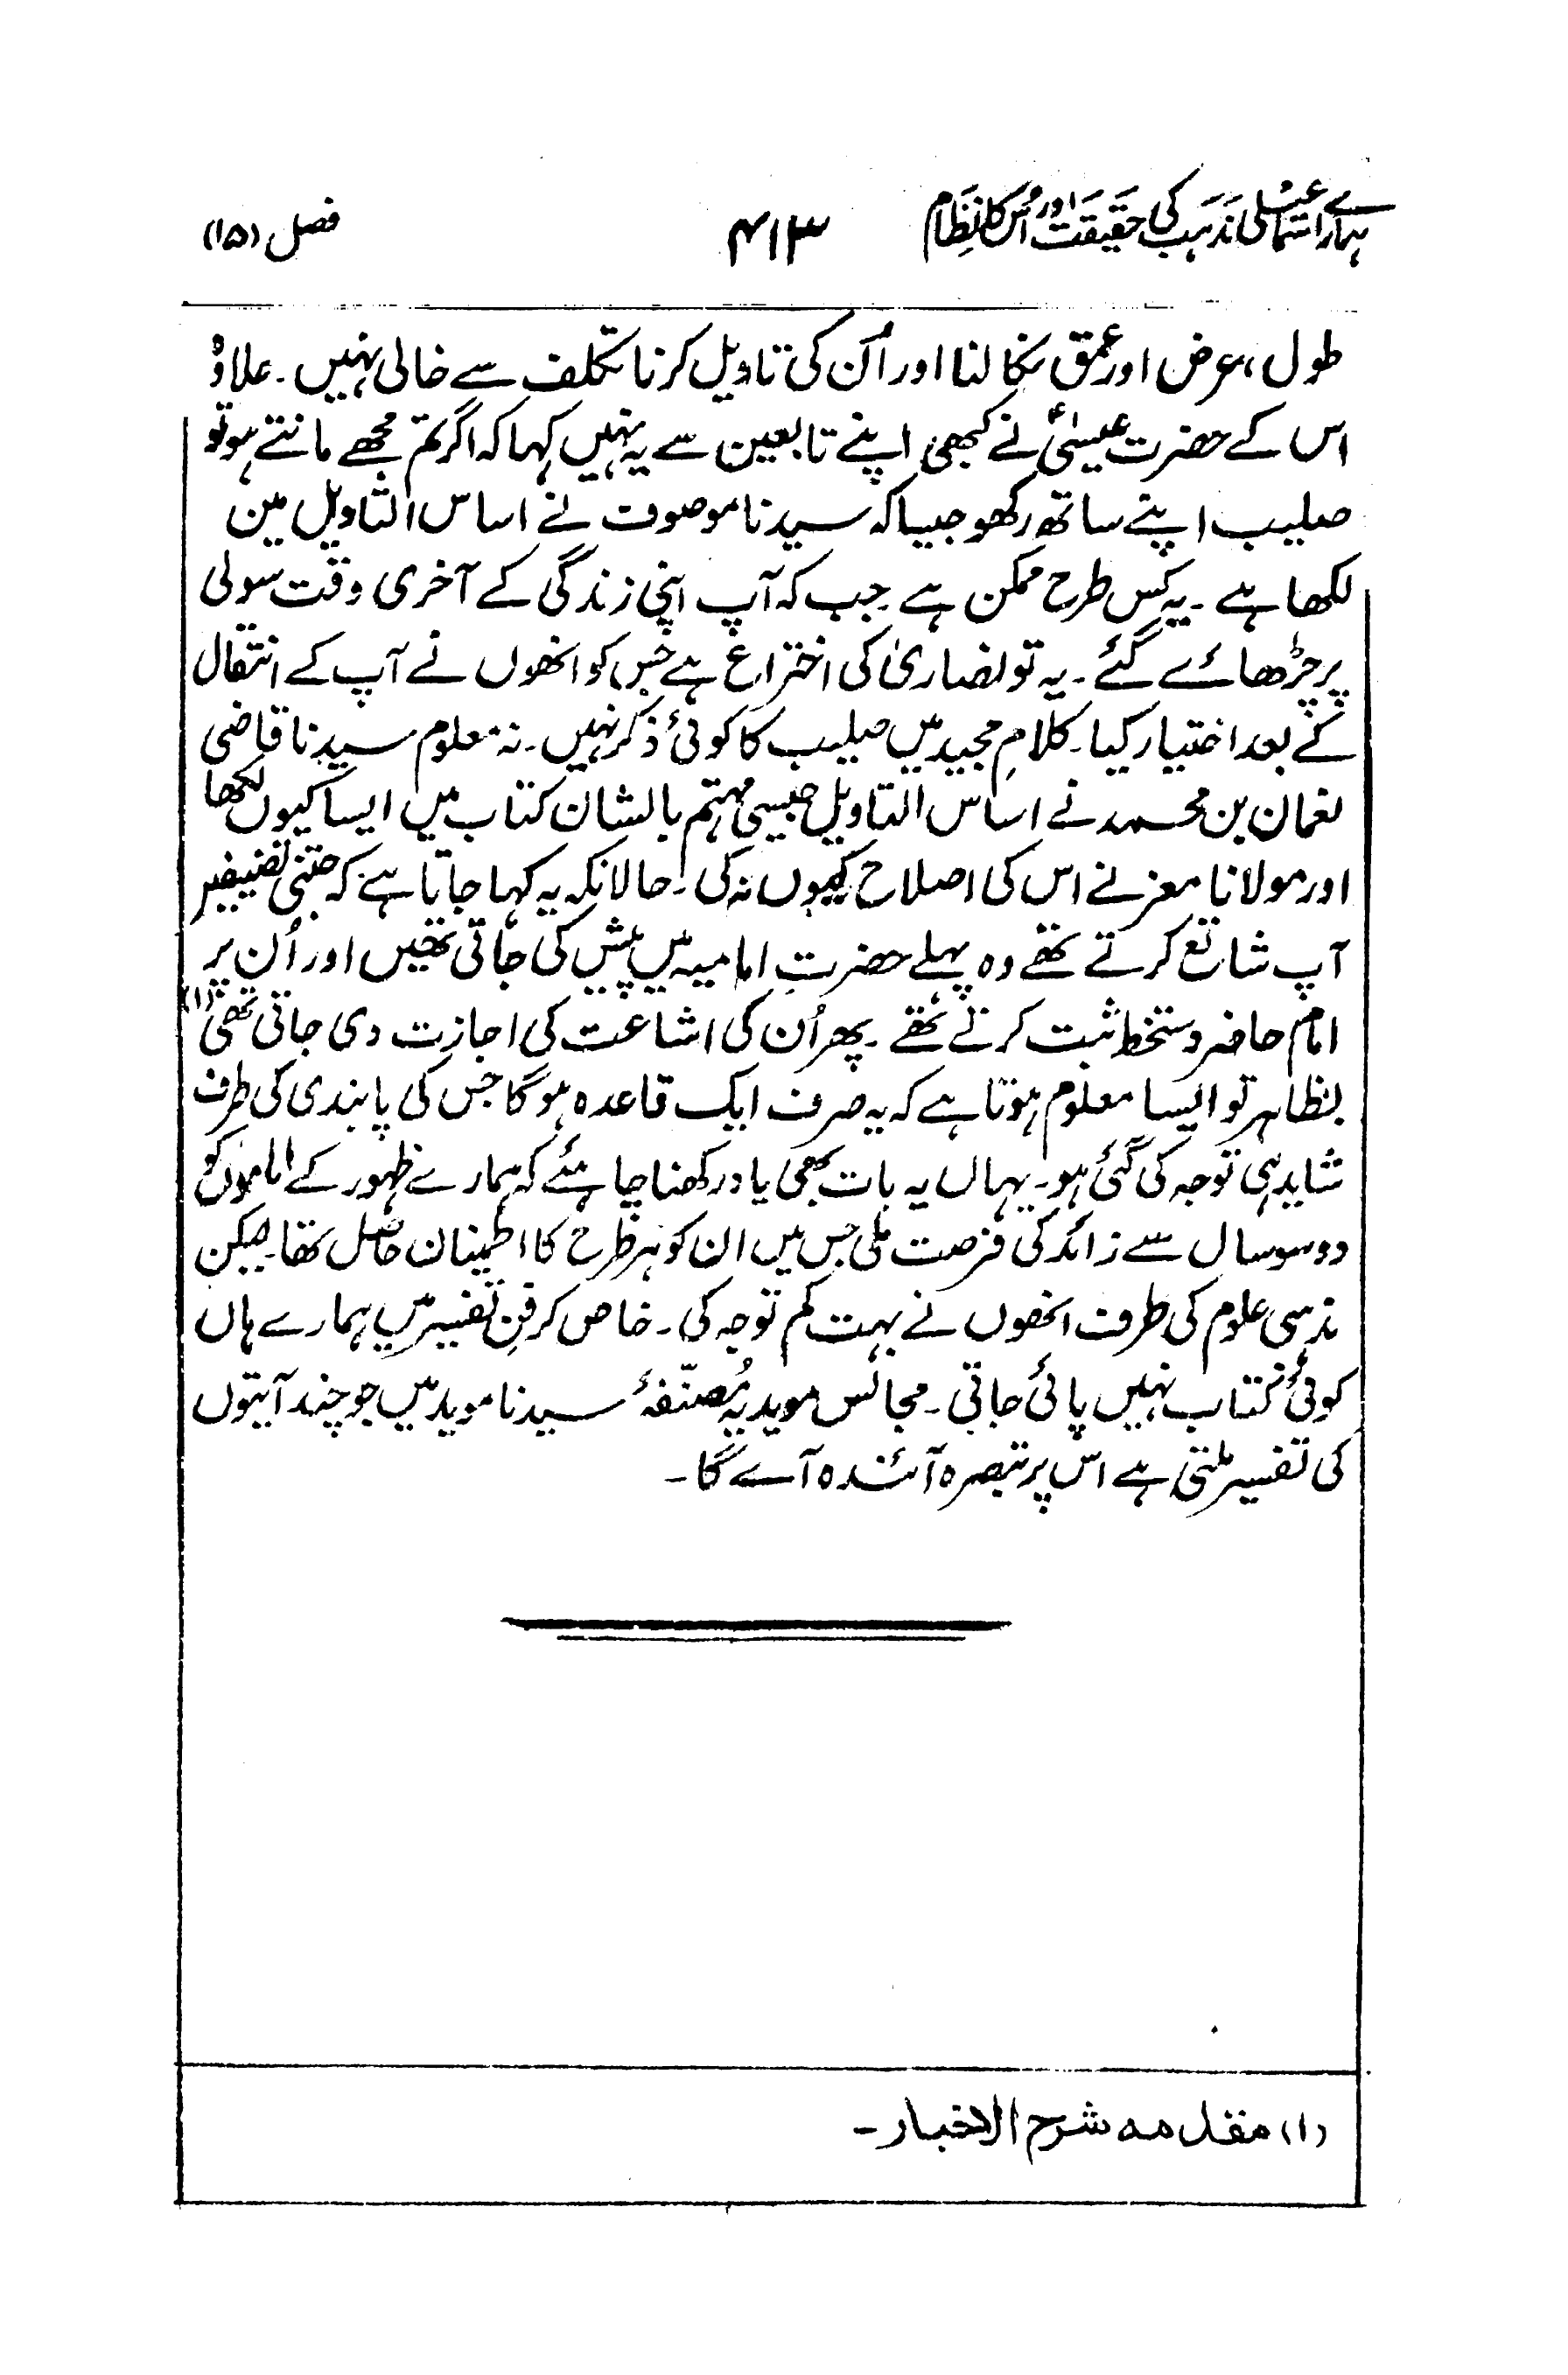 ہمارے اسماعیلی مذہب کی حقیقت اور اُس کا نظام ۴۱۳ فصل (۱۵)
طول، عرض اور عمق نکالنا اور اُن کی تاویل کرنا تکلف سے خالی نہیں۔ علاوہ
اس کے حضرت عیسیٰؑ نے کبھی اپنے تابعین سے یہ نہیں کہا کہ اگر تم مجھے مانتے ہو تو
صلیب اپنے ساتھ رکھو جیسا کہ سیدنا موصوف نے اساس التاویل میں
لکھا ہے۔ یہ کس طرح ممکن ہے جب کہ آپ اپنی زندگی کے آخری وقت سولی
پر چڑھائے گئے۔ یہ تو نصاریٰ کی اختراع ہے جس کو انھوں نے آپ کے انتقال
کے بعد اختیار کیا۔ کلامِ مجید میں صلیب کا کوئی ذکر نہیں۔ نہ معلوم سیدنا قاضی
نعمان بن محمد نے اساس التاویل جیسی مہتم بالشان کتاب میں ایسا کیوں لکھا
اور مولانا معز نے اس کی اصلاح کیوں نہ کی۔ حالانکہ یہ کہا جاتا ہے کہ جتنی تصنیفیں
آپ شائع کرتے تھے وہ پہلے حضرتِ امامیہ میں پیش کی جاتی تھیں اور اُن پر
امام حاضر دستخط ثبت کرتے تھے۔ پھر اُن کی اشاعت کی اجازت دی جاتی تھی (۱)
بظاہر تو ایسا معلوم ہوتا ہے کہ یہ صرف ایک قاعدہ ہو گا جس کی پابندی کی طرف
شاید ہی توجہ کی گئی ہو۔ یہاں یہ بات بھی یاد رکھنا چاہئے کہ ہمارے ظہور کے اماموں کو
دو سو سال سے زائد کی فرصت ملی جس میں ان کو ہر طرح کا اطمینان حاصل تھا۔ لیکن
مذہبی علوم کی طرف انھوں نے بہت کم توجہ کی۔ خاص کر فنِ تفسیر میں ہمارے ہاں
کوئی کتاب نہیں پائی جاتی۔ مجالس مویدیہ مُصنّفۂ سیدنا موید میں جو چند آیتوں
کی تفسیر ملتی ہے اس پر تبصرہ آئندہ آے گا۔
(۱) مقدمہ شرح الاخبار۔